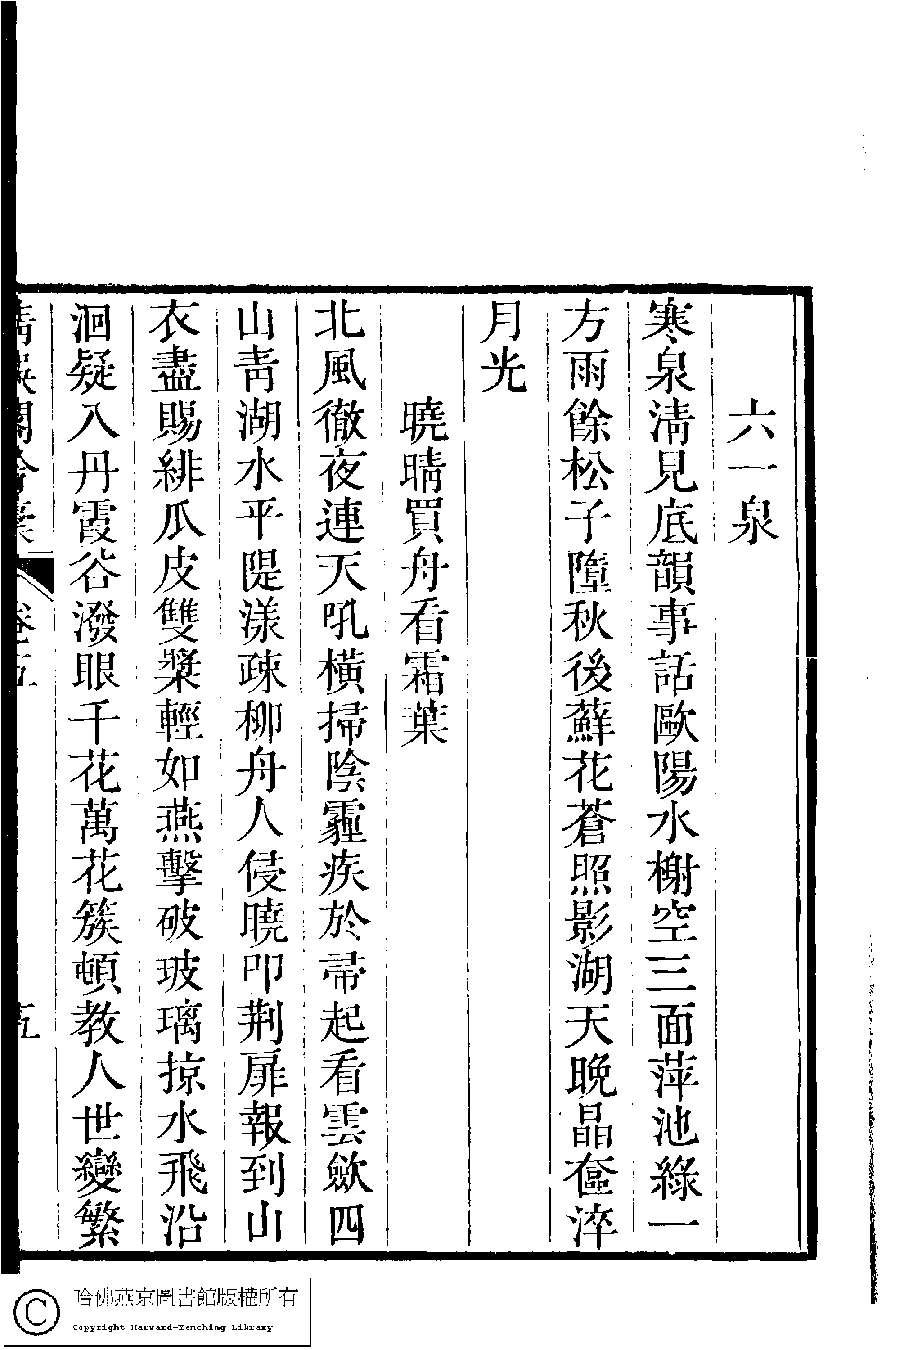 六一泉
寒泉淸見底韻事話歐陽水榭空三面萍池綠一
方雨餘松子墮秋後蘚花蒼照影湖天晚晶奩淬
月光
曉晴買舟看霜葉
北風徹夜連天吼橫掃陰霾疾於帚起看雲斂四
山靑湖水平隄漾疎柳舟人侵曉叩荆扉報到山
衣盡賜緋瓜皮雙槳輕如燕擊破玻璃掠水飛沿
洄疑入丹霞谷潑眼千花萬花簇頓教人世變繁
卷五
五
哈佛燕京圖書館版權所有
Copyright Harvard-Yenching Library